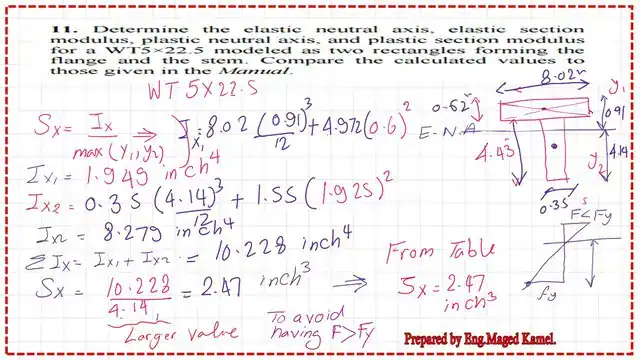 11. Determine the elastic neutral axis, elastic section
modulus, plastic neutral axis, and plastic section modulus
for a WT5×22.5 modeled as two rectangles forming the
flange and the stem. Compare the calculated values to
those given in the Manual.
WT 5X22.5
8.02"
y1
0.62"
0.91
E-N.A
4.43"
y2
4.14
0.35"
Sx = Ix / max(y1, y2) ⇒ Ix1 = 8.02 (0.91)^3/12 + 4.972(0.6)^2
Ix1 = 1.949 inch^4
Ix2 = 0.35 (4.14)^3/12 + 1.55 (1.925)^2
Ix2 = 8.279 inch^4
ΣIx = Ix1 + Ix2 = 10.228 inch^4
Sx = 10.228/4.14 = 2.47 inch^3 ⇒
Larger value
To avoid
having F>Fy
From Table
Sx = 2.47
inch^3
F<Fy
fy
Prepared by Eng.Maged Kamel.